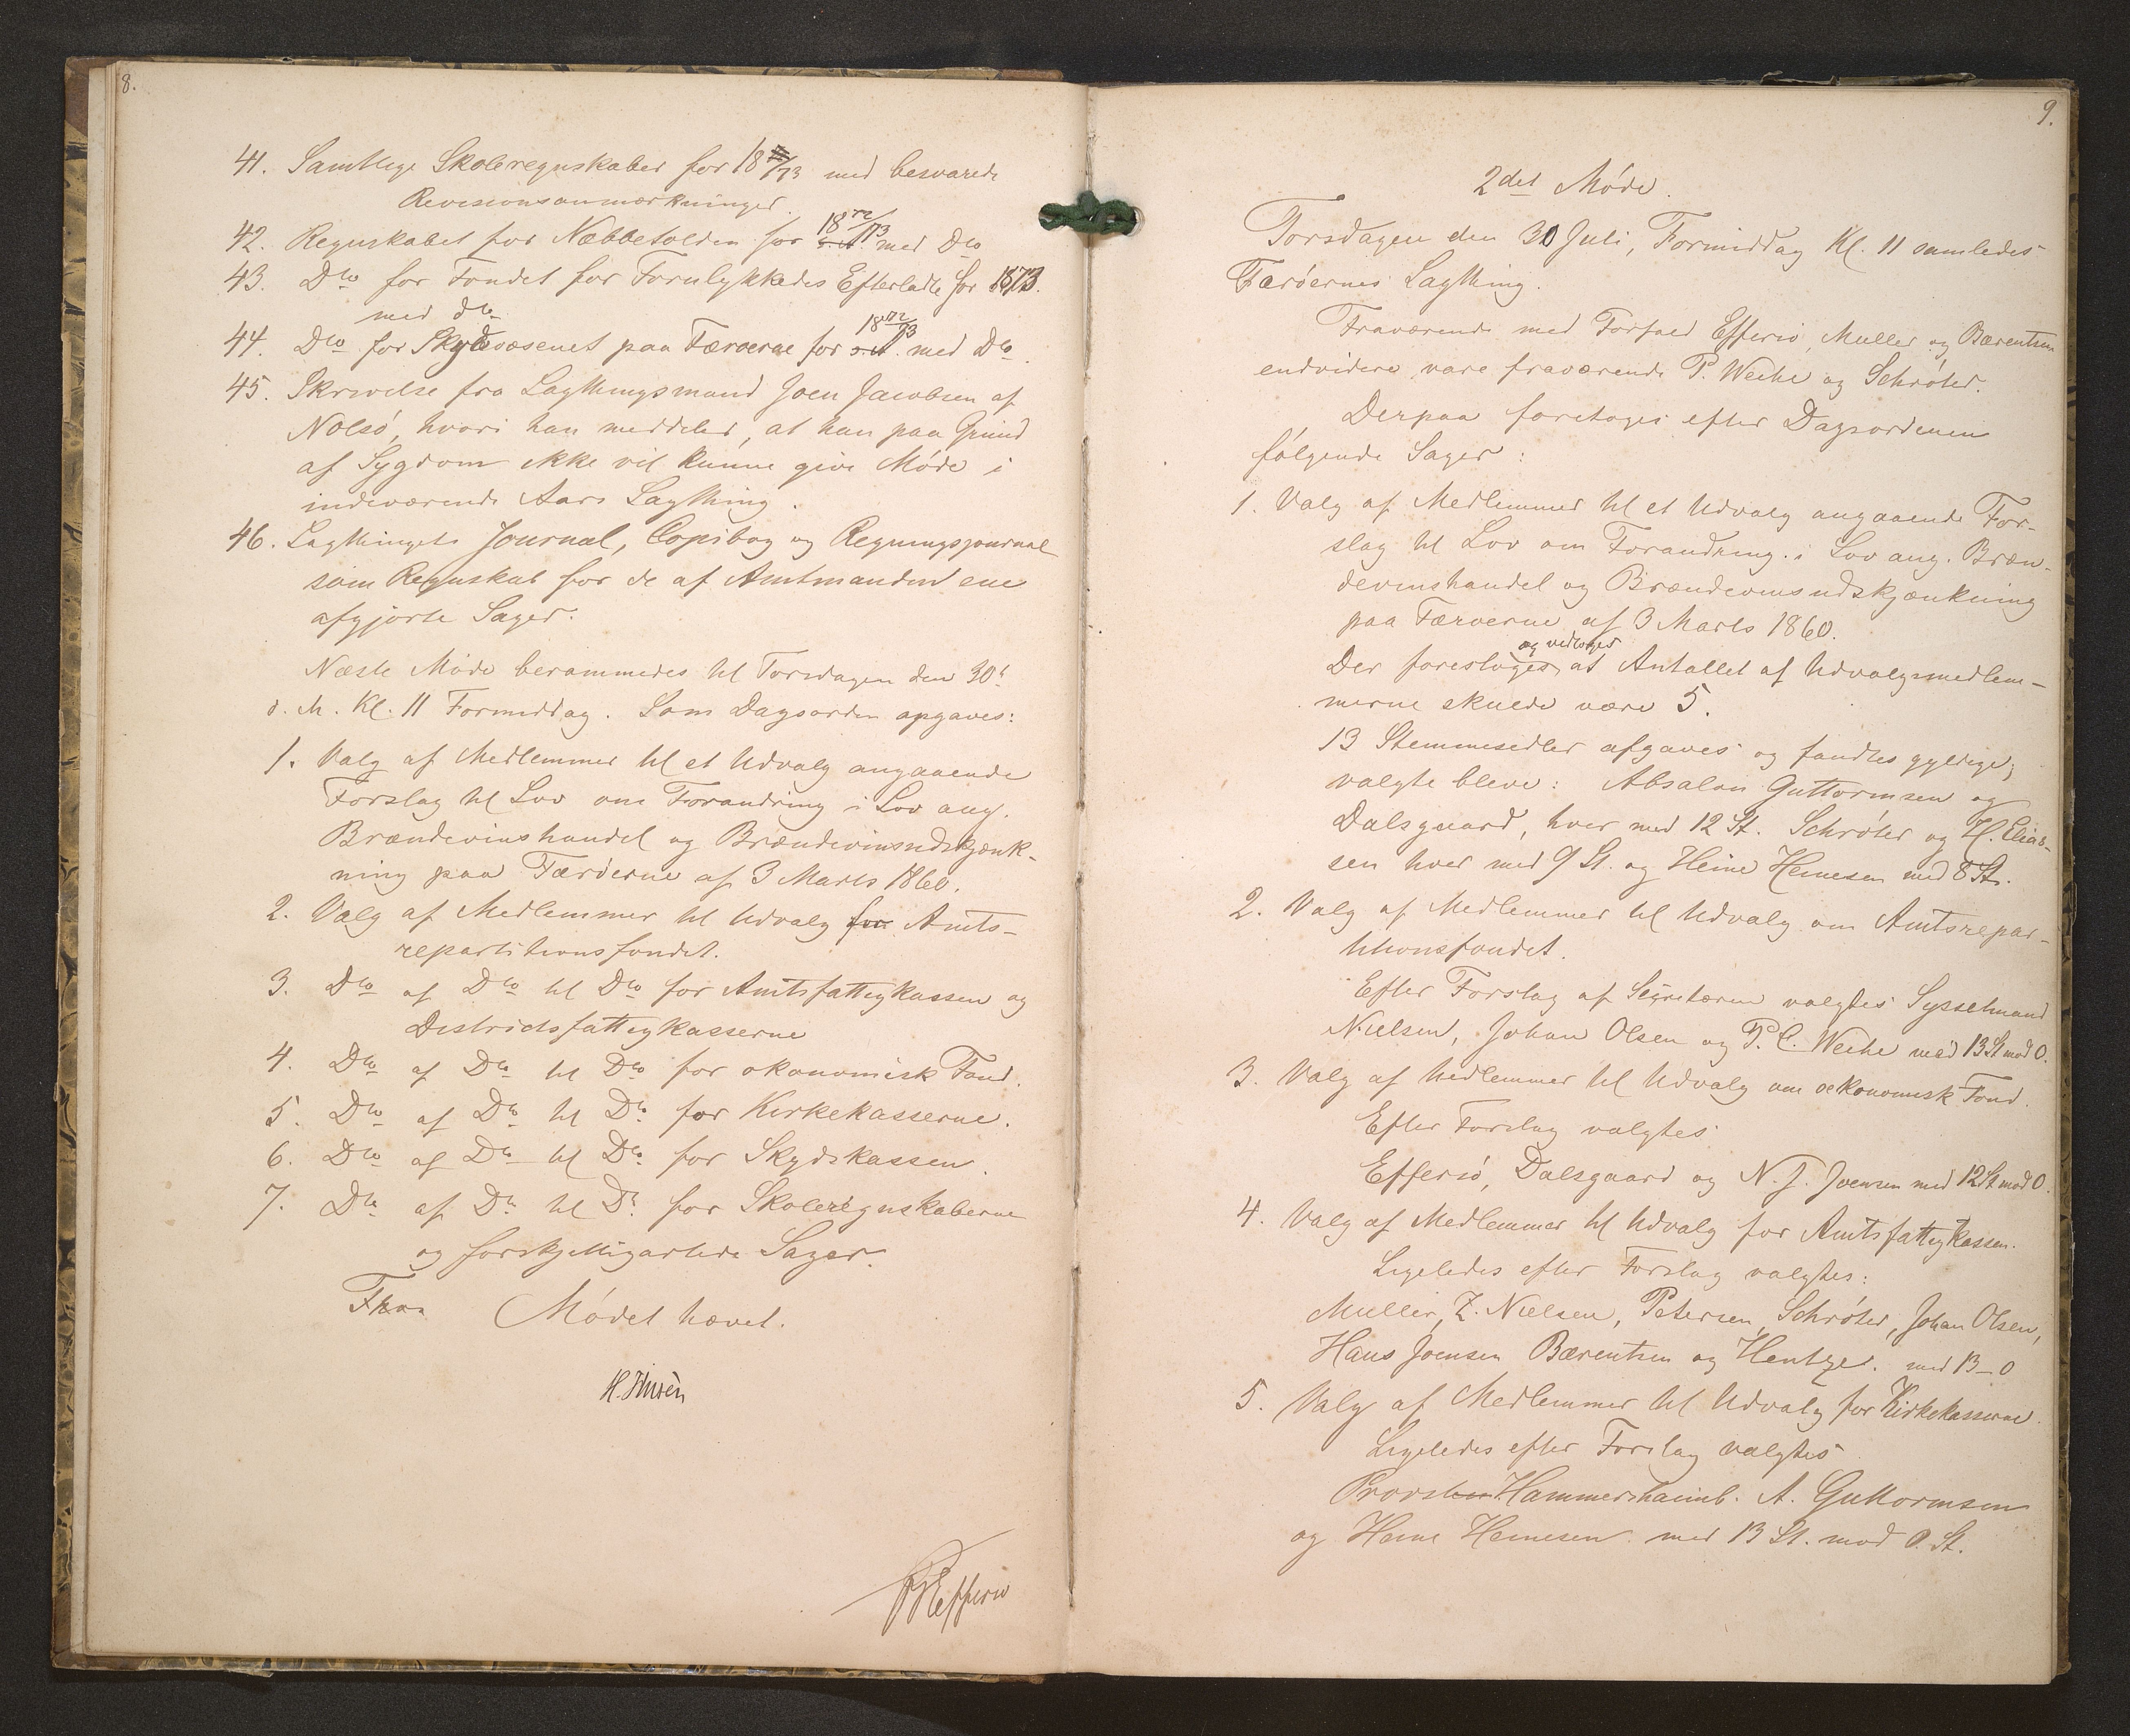 8.
41. Samtlige Skoleregnskaber for 18 72/73 med besvarede
Revisionsanmærkninger.
42. Regnskabet for Næbbetolden for 18 72/73 med Dto
43. Dto for Fondet for Forulykkedes Efterladte for 1873.
med dto
44. Dto for Skydsvæsenet paa Færøerne for 18 72/73 med Dto.
45. Skrivelse fra Lagthingsmand Joen Jacobsen af
Nolsö, hvori han meddeler, at han paa Grund
af Sygdom ikke vil kunne give Möde i
indeværende Aars Lagthing.
46. Lagthingets Journal, Copibog og Regningsjournal
som Regnskab for de af Amtmanden ene
afgjorte Sager.
Næste Möde berammedes til Torsdagen den 30t
d. M. Kl. 11 Formiddag. Som Dagsorden opgaves:
1. Valg af Medlemmer til et Udvalg angaaende
Forslag til Lov om Forandring i Lov ang.
Brændevinshandel og Brændevinsudskjænk-
ning paa Færöerne af 3 Marts 1860.
2. Valg af Medlemmer til Udvalg for Amts-
repartitionsfondet.
3. Dto af Dto til Dto for Amtsfattigkassen og
Districtsfattigkasserne
4. Dto af Dto til Dto for økonomisk Fond.
5. Dto af Dto til Dto for Kirkekasserne.
6. Dto af Dto til Dto for Skydskassen.
7. Dto af Dto til Dto for Skoleregnskaberne
og forskjelligartede Sager.
Mödet hævet.
HEfferso
9.
2det Möde.
Torsdagen den 30 Juli, Formiddag Kl. 11 samledes
Færöernes Lagthing.
Fraværende med Forfald Effersö, Muller og Bærentsen
endvidere vare fraværende P. Weihe og Schröter.
Derpaa foretoges efter Dagsordenen
fölgende Sager:
1. Valg af Medlemmer til et Udvalg angaaende For-
slag til Lov om Forandring i Lov ang. Bræn-
devinshandel og Brændevinsudskjænkning
paa Færøerne af 3 Marts 1860.
og vedtoges
Der foresloges at Antallet af Udvalgsmedlem-
merne skulde være 5.
13 Stemmesedler afgaves og fandtes gyldige;
valgte bleve: Absalon Guttormsen og
Dalsgaard, hver med 12 St. Schröter og H. Elias-
sen hver med 9 St. og Heine Heinesen med 8 St.
2. Valg af Medlemmer til Udvalg om Amtsrepar-
titionsfondet.
Efter Forslag af Secretæren valgtes Sysselmand
Nielsen, Johan Olsen og P. C. Weihe med 13 St mod 0.
3. Valg af Medlemmer til Udvalg om oekonomisk Fond.
Efter Forslag valgtes
Effersö, Dalsgaard og N. J. Joensen med 12 St mod 0.
4. Valg af Medlemmer til Udvalg for Amtsfattigkassen.
Ligeledes efter Forslag valgtes:
Muller, Z. Nielsen, Petersen, Schröter, Johan Olsen,
Hans Joensen Bærentsen og Hentze. med 13-0
5. Valg af Medlemmer til Udvalg for Kirkekasserne.
Ligeledes efter Forslag valgtes
Provsten Hammershaimb. A. Guttormsen
og Heine Heinesen med 13 St. mod 0. St.